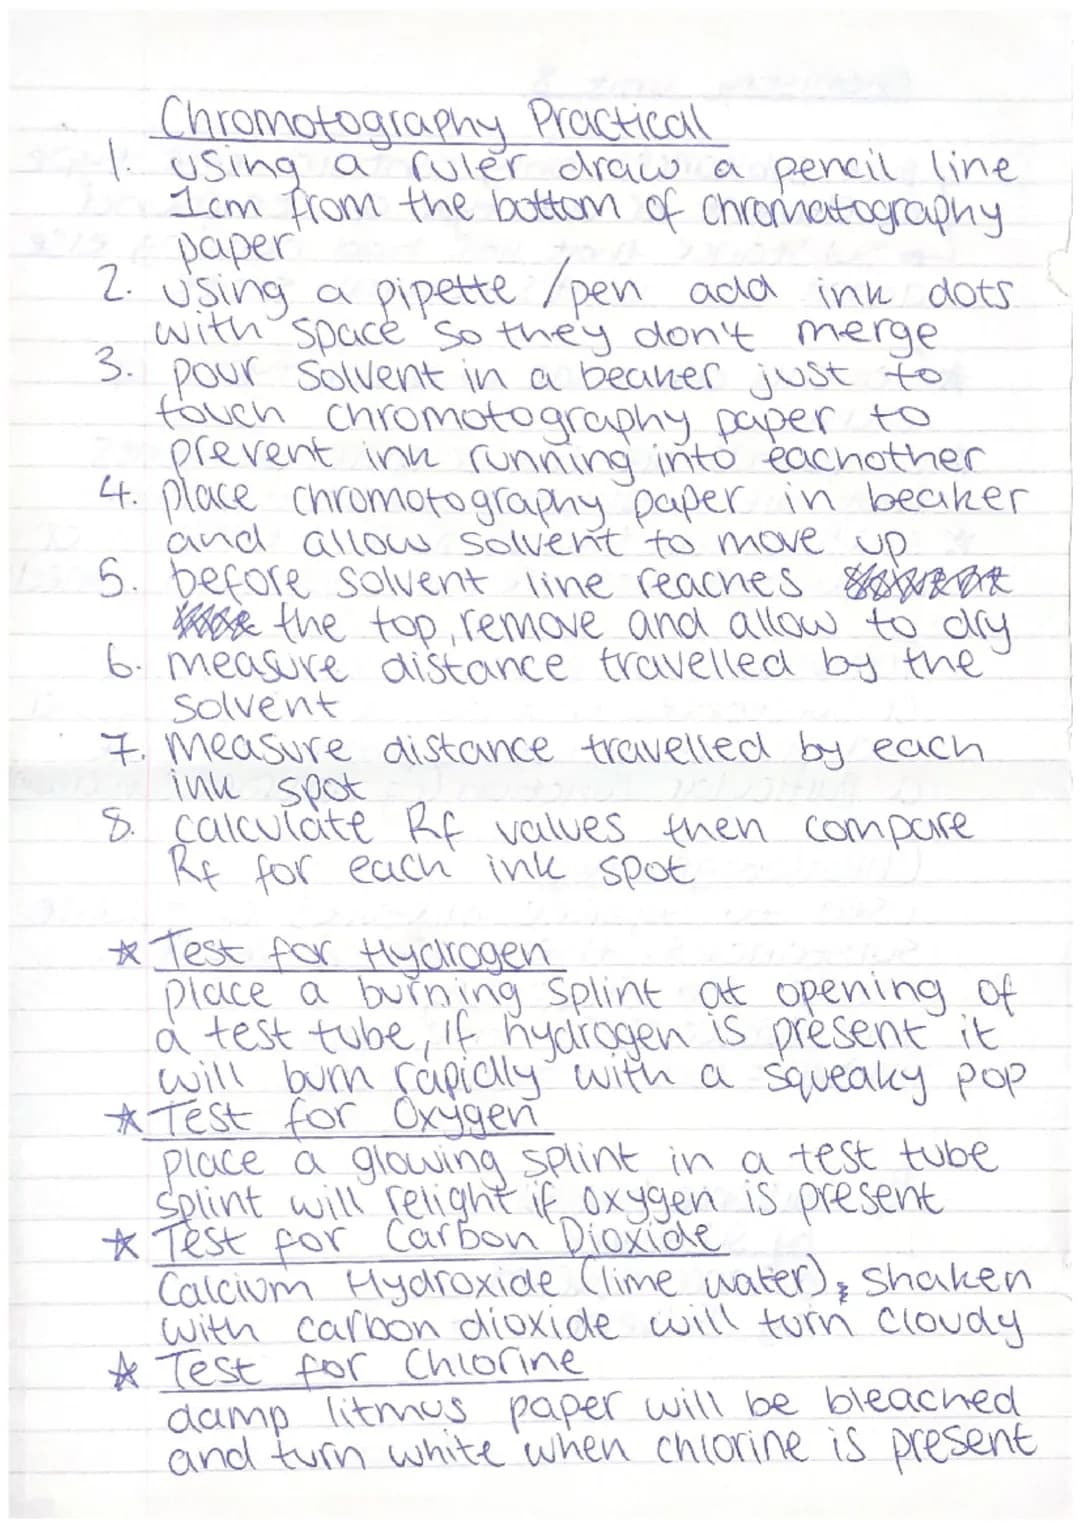 Chromotography Practical
1. using a ruler draw a pencil line
1cm from the bottom of chromatography
paper
2. using a pipette / pen add ink dots
with space so they don't merge
3. pour solvent in a beaker just to
touch chromotography paper to
prevent ink running into eachother
4. place chromotography paper in beaker
and allow solvent to move up
5. before solvent line reaches
the top, remove and allow to dry
6. measure distance travelled by the
solvent
7. measure distance travelled by each
ink spot
8. calculate Rf values then compare
Rf for each ink spot
☆ Test for Hydrogen
place a burning splint at opening of
a test tube, if hydrogen is present it
will burn rapidly with a squeaky pop
☆ Test for Oxygen
place a glowing splint in a test tube
splint will relight if oxygen is present
☆ Test for Carbon Dioxide
Calcium Hydroxide (lime water), shaken
with carbon dioxide will turn cloudy
☆ Test for Chlorine
damp litmus paper will be bleached
and turn white when chlorine is present